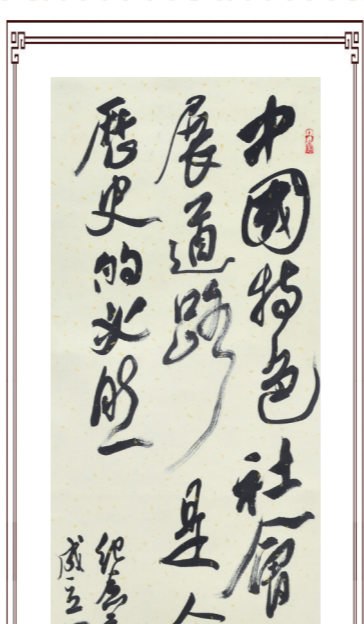 中國特色社會
展道路是人
歷史的必然
紀念
成立